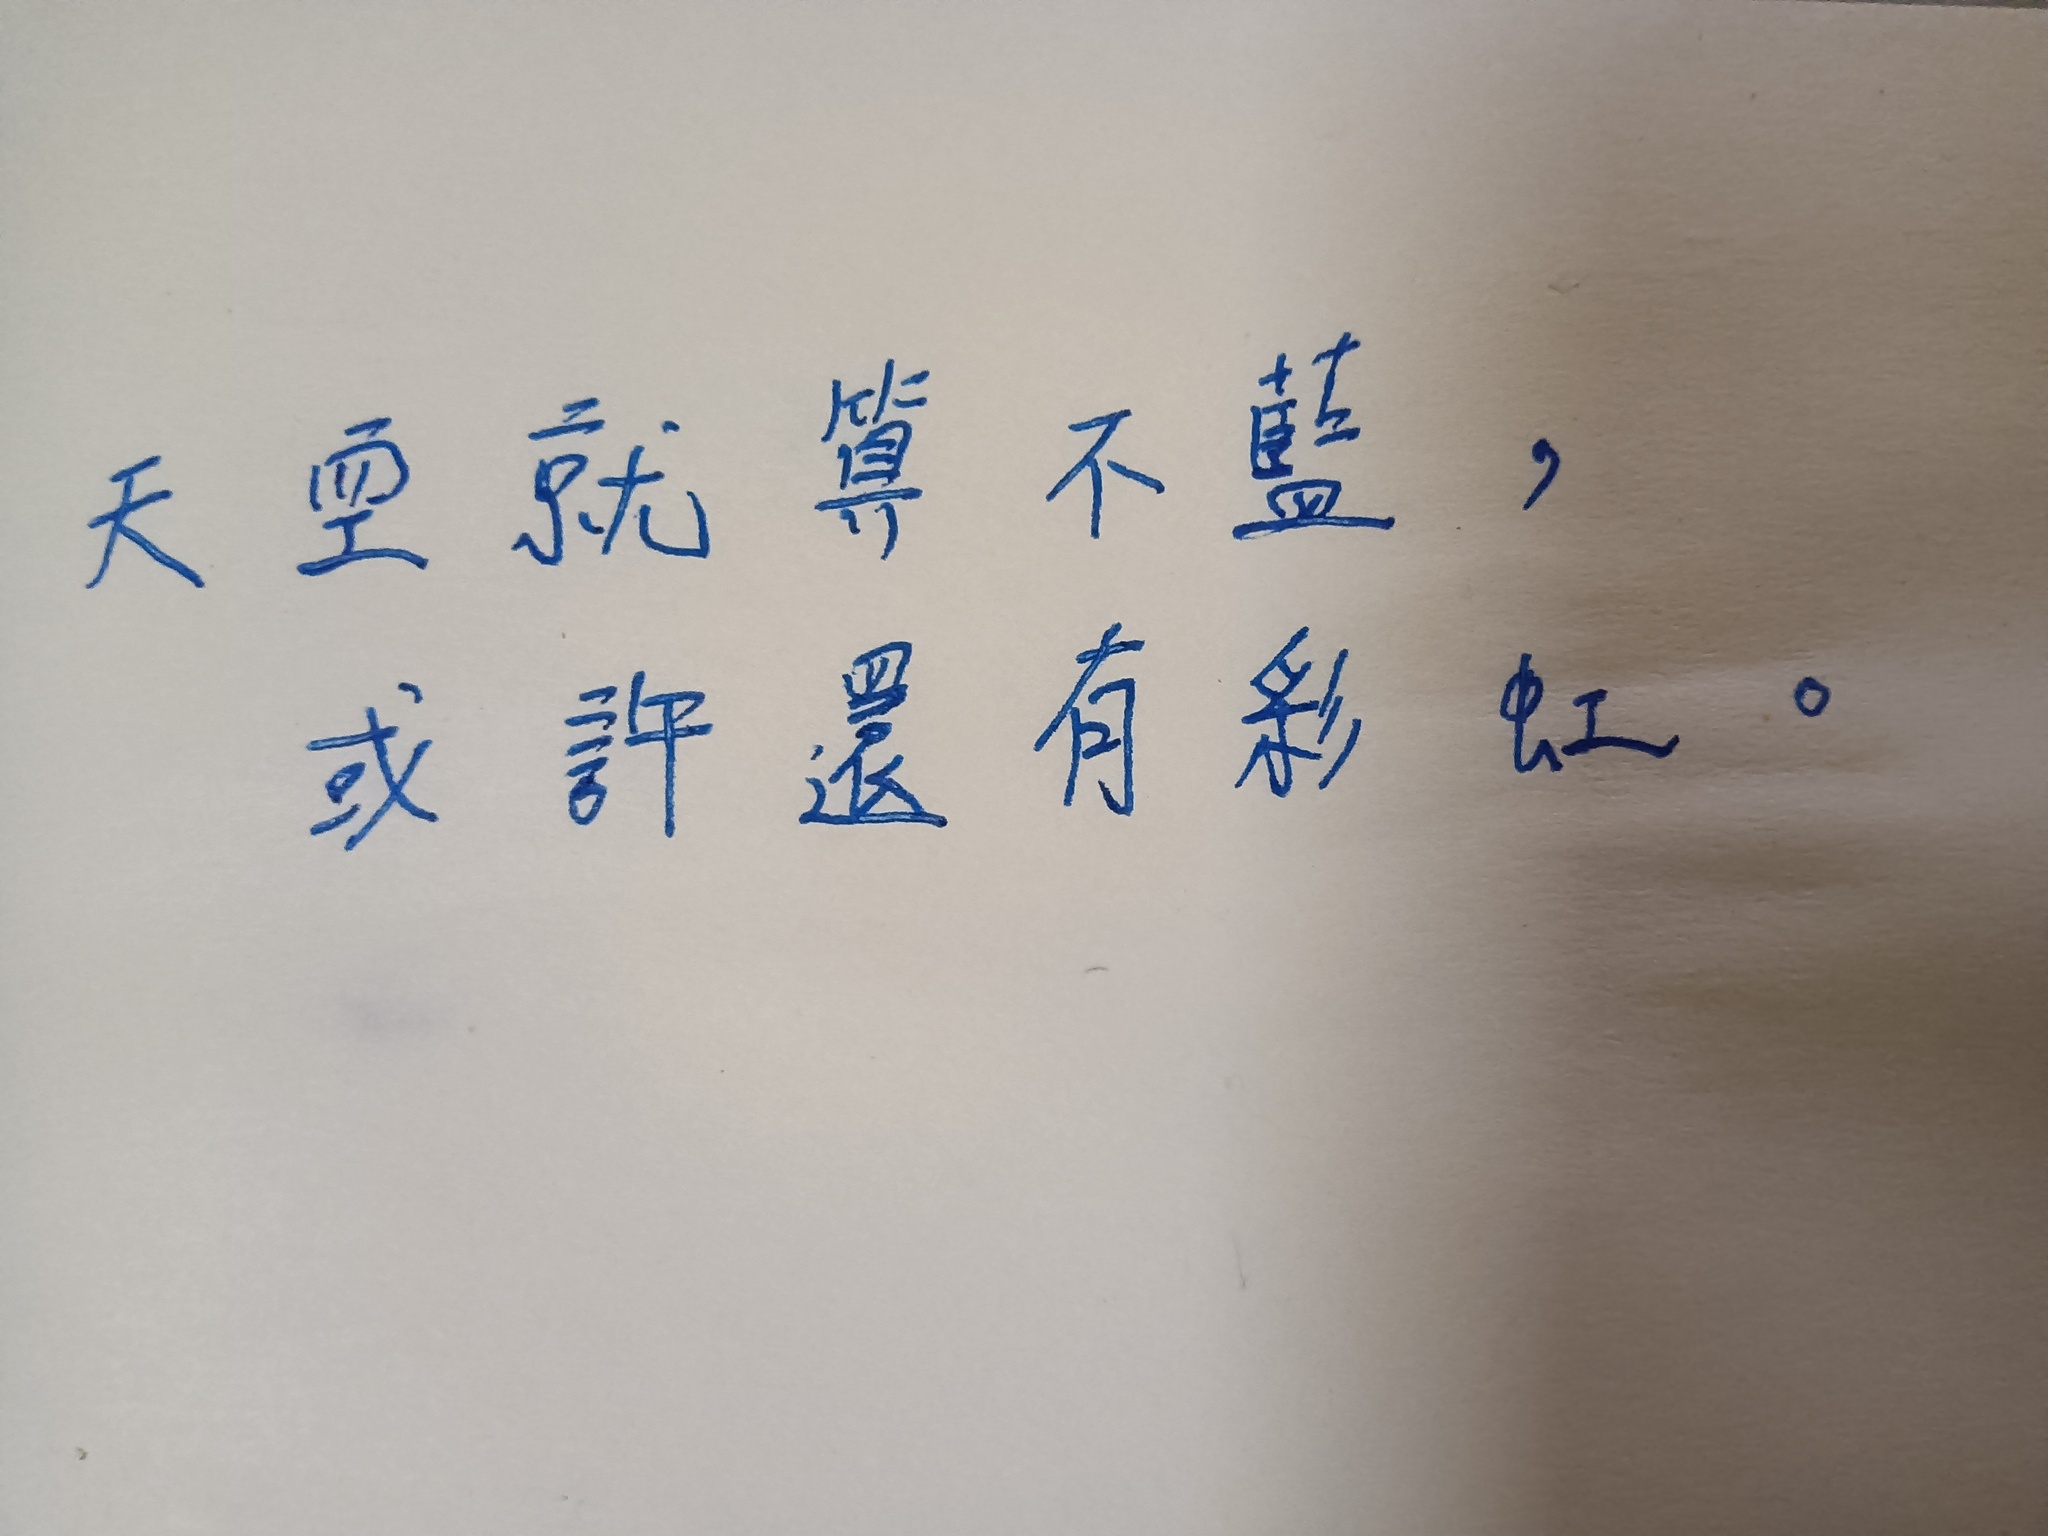 天空就算不藍，
或許還有彩虹。